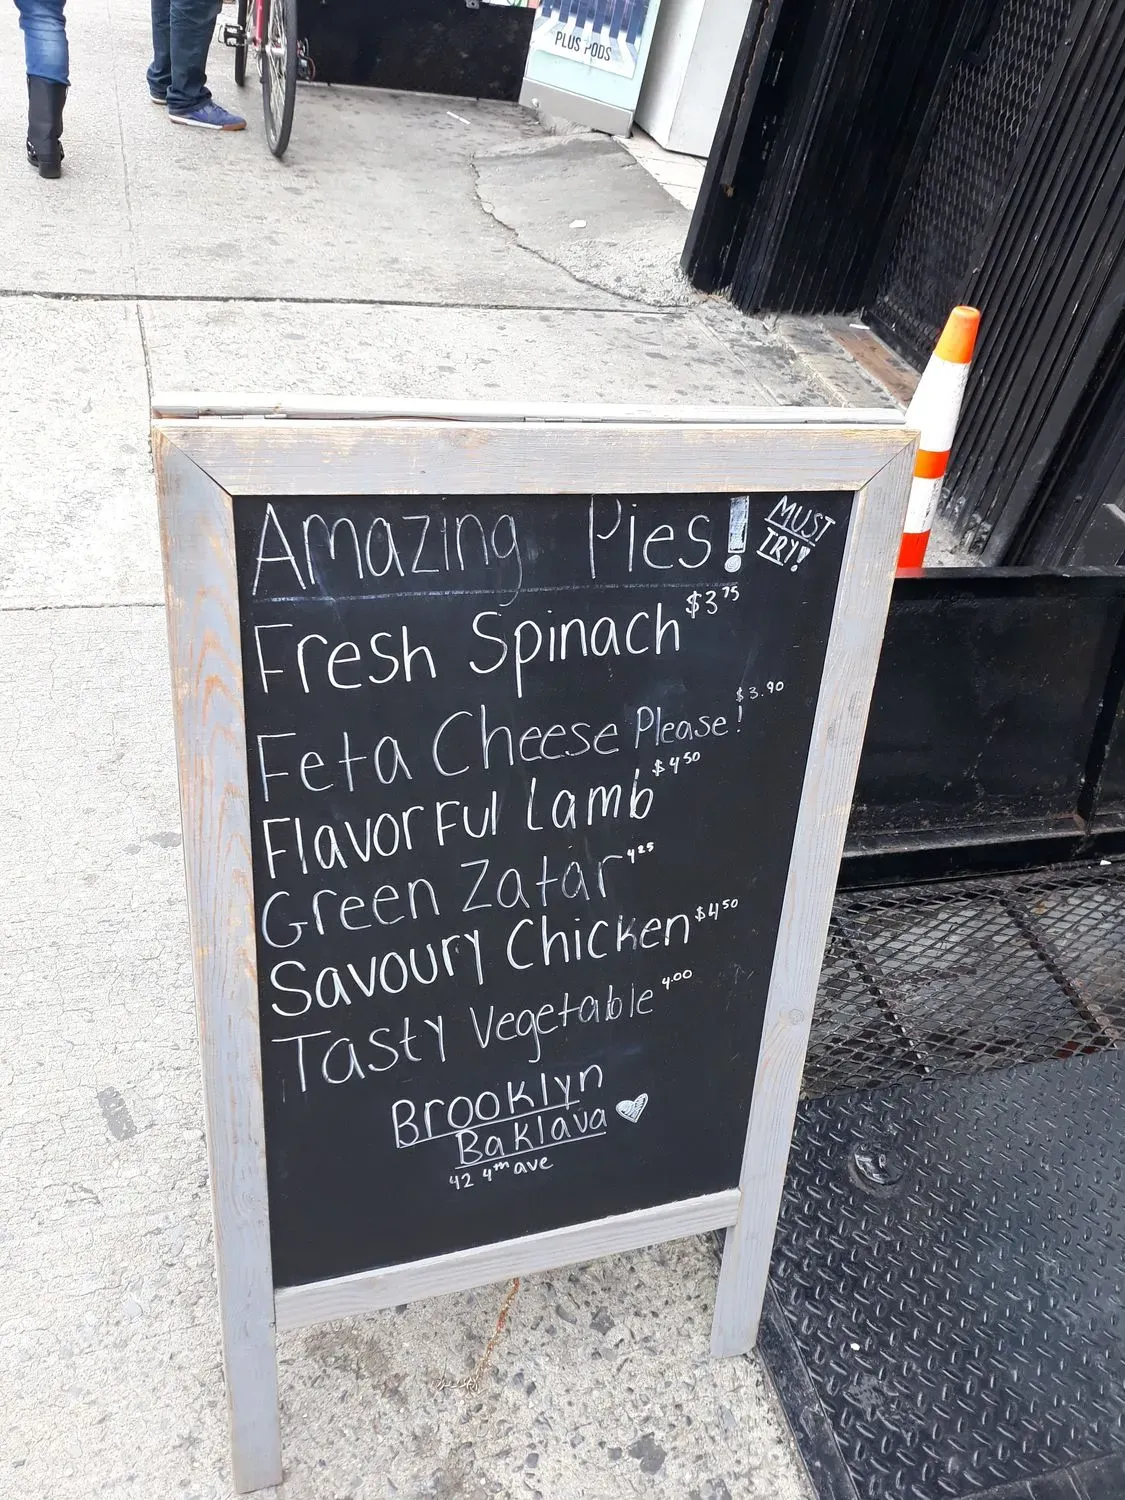 PLUS PODS
Amazing Pies! MUST TRY!
Fresh Spinach $3 75
Feta Cheese Please! $3.90
Flavorful Lamb $4 50
Green Zatar 4 25
Savoury Chicken $4 50
Tasty Vegetable 4.00
Brooklyn
Baklava
42 4th ave